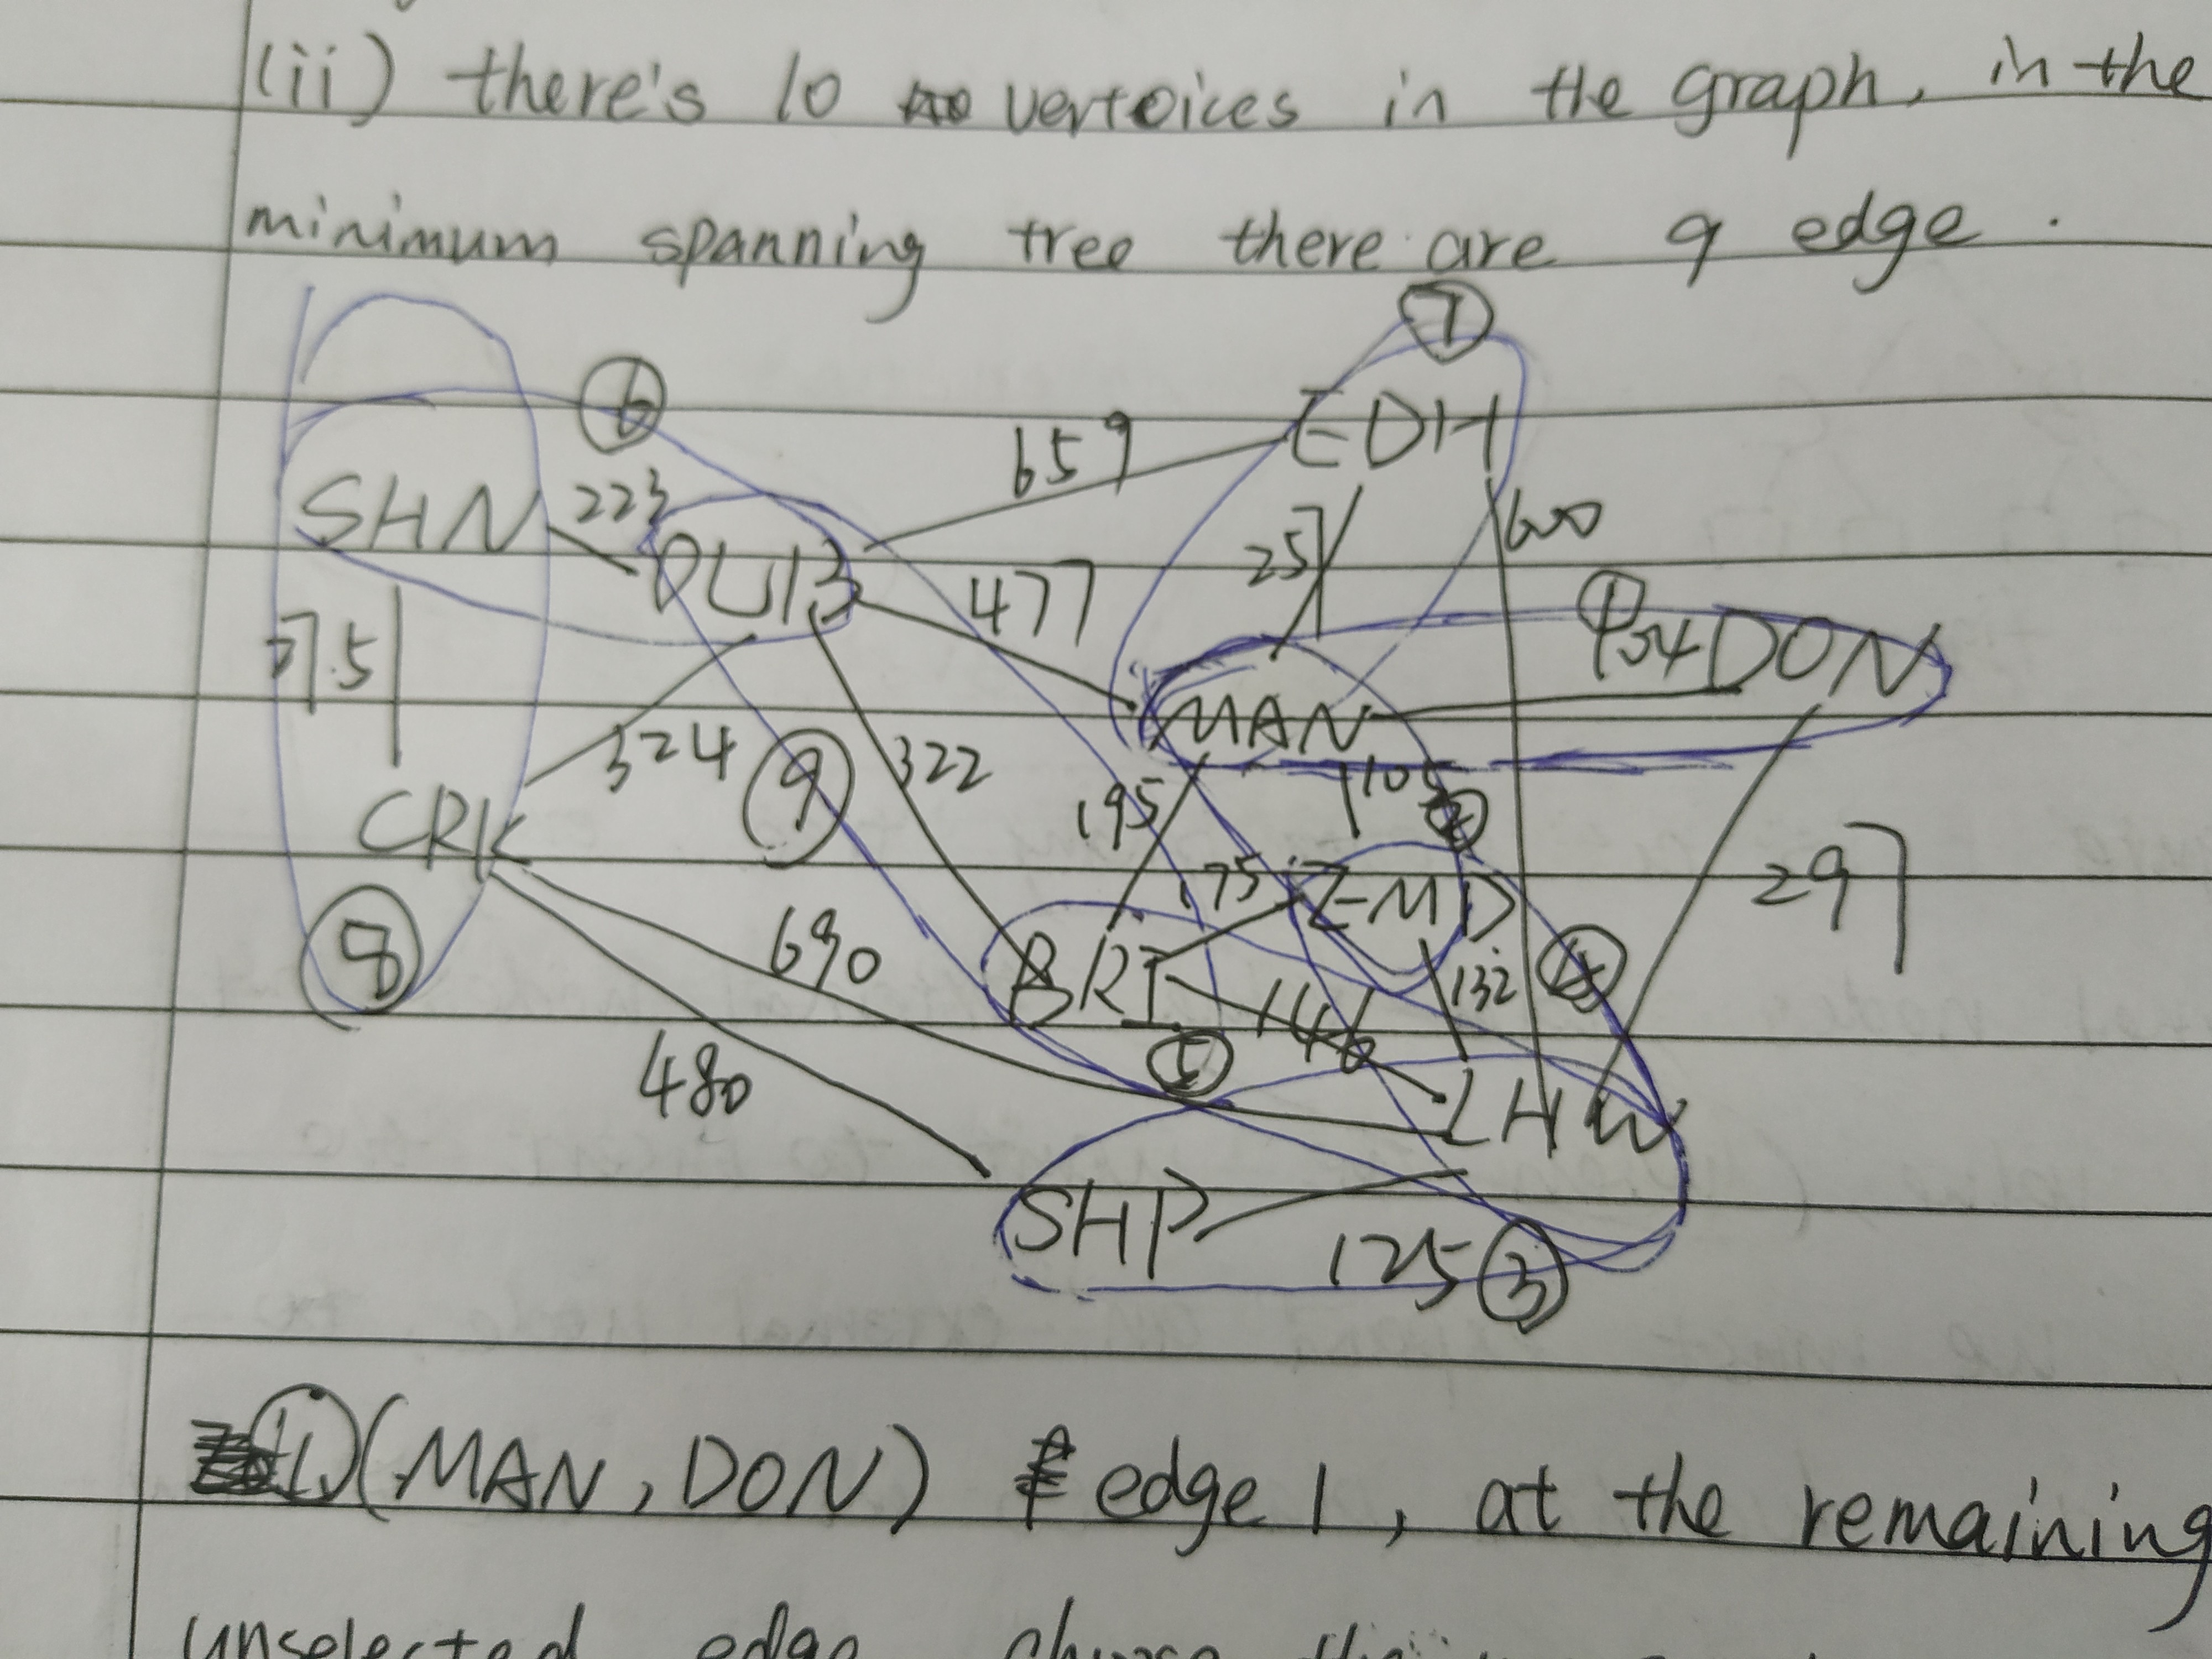 (ii) there's 10 vertoices in the graph, in the
minimum spanning tree there are 9 edge.
7
6
EDH
659
SHN 223 DUB
257
600
477
1
54 DON
MAN
324
9
322
195
105
2
CRK
297
175
EMD
8
690
BRI
146
132
4
5
480
LHW
SHP
125 3
1. (MAN, DON) edge 1, at the remaining
unselected edge choose the